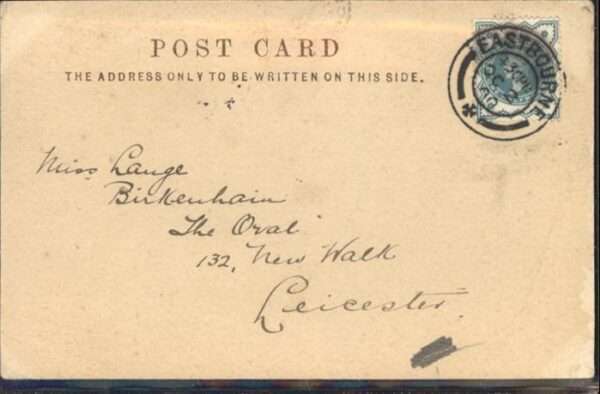 POST CARD
THE ADDRESS ONLY TO BE WRITTEN ON THIS SIDE.
EASTBOURNE
Miss Lange
Birkenhain
The Oval
132, New Walk
Leicester.